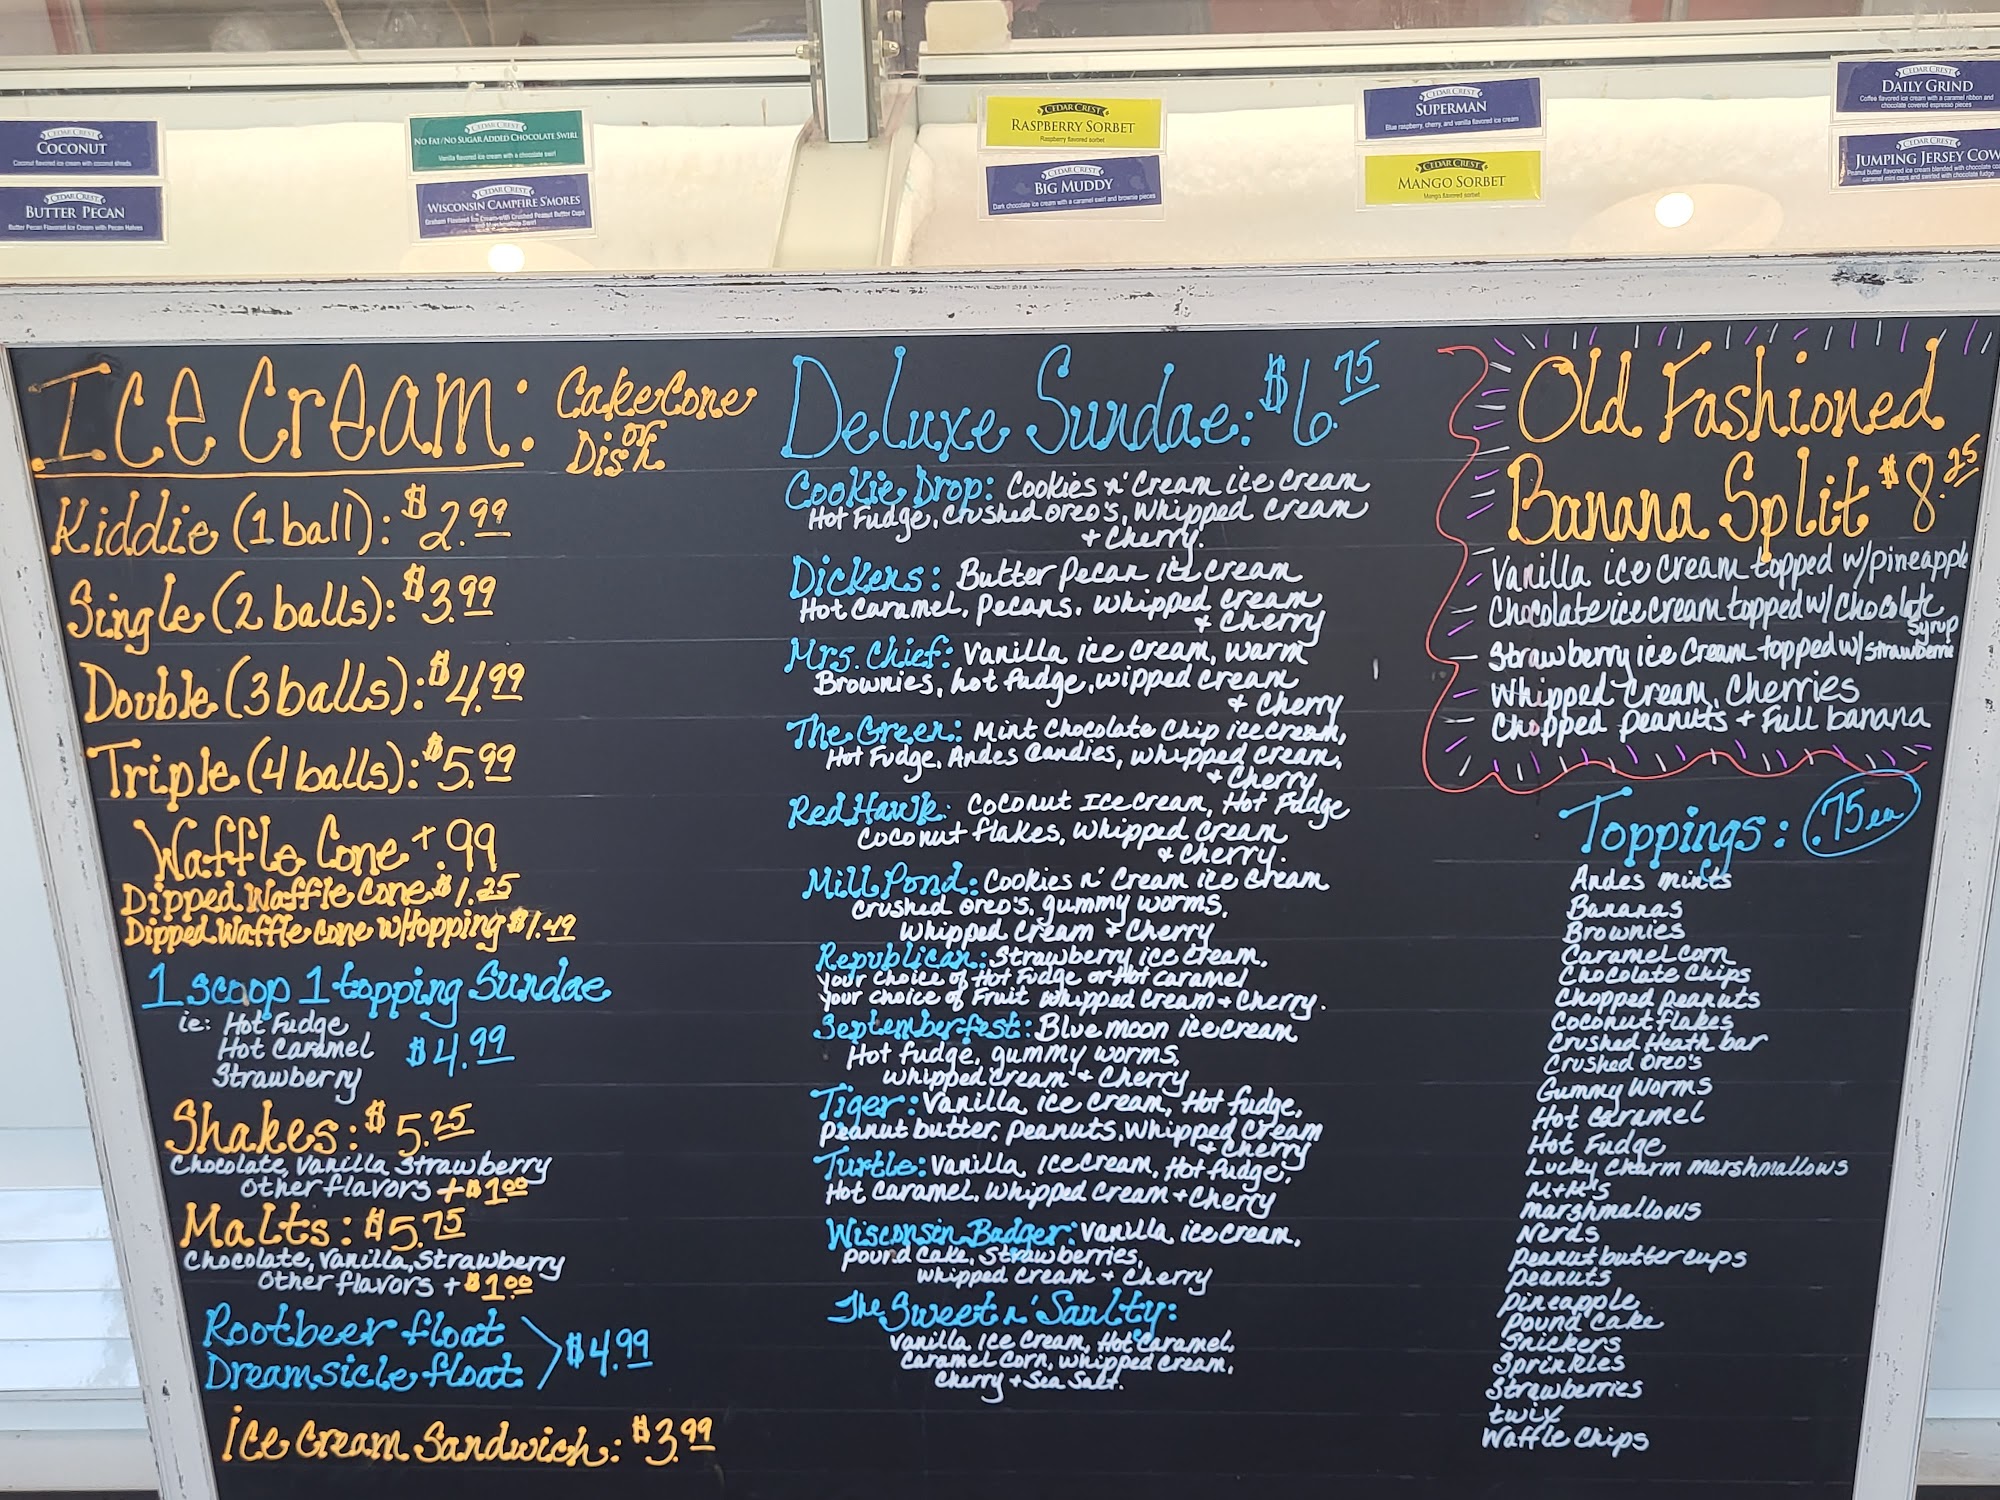 CEDAR CREST
COCONUT
Coconut flavored ice cream with coconut shreds
CEDAR CREST
BUTTER PECAN
Butter Pecan Flavored Ice Cream with Pecan Halves
CEDAR CREST
NO FAT/NO SUGAR ADDED CHOCOLATE SWIRL
Vanilla flavored ice cream with a chocolate swirl
CEDAR CREST
WISCONSIN CAMPFIRE S'MORES
Graham Flavored Ice Cream with Crushed Peanut Butter Cups
and Marshmallow Swirl
CEDAR CREST
RASPBERRY SORBET
Raspberry flavored sorbet
CEDAR CREST
BIG MUDDY
Dark chocolate ice cream with a caramel swirl and brownie pieces
CEDAR CREST
SUPERMAN
Blue raspberry, cherry, and vanilla flavored ice cream
CEDAR CREST
MANGO SORBET
Mango flavored sorbet
CEDAR CREST
DAILY GRIND
Coffee flavored ice cream with a caramel ribbon and
chocolate covered espresso pieces
CEDAR CREST
JUMPING JERSEY COW
Peanut butter flavored ice cream blended with chocolate
caramel mini cups and swirled with chocolate fudge
Ice Cream: Cake Cone
or
Dish
Kiddie (1 ball): $2.99
Single (2 balls): $3.99
Double (3 balls): $4.99
Triple (4 balls): $5.99
Waffle Cone + .99
Dipped Waffle Cone $1.25
Dipped Waffle cone w/topping $1.49
1 scoop 1 topping Sundae
ie: Hot Fudge
Hot Caramel $4.99
Strawberry
Shakes: $5.25
Chocolate, Vanilla, Strawberry
Other flavors + $1.00
Malts: $5.75
Chocolate, Vanilla, Strawberry
Other flavors + $1.00
Rootbeer float
Dreamsicle float > $4.99
Ice Cream Sandwich: $3.99
Deluxe Sundae: $6.75
Cookie Drop: Cookies n' Cream ice cream
Hot Fudge, Crushed oreo's, Whipped cream
+ Cherry.
Dickens: Butter Pecan ice cream
Hot Caramel, Pecans, Whipped cream
+ Cherry
Mrs. Chief: Vanilla ice cream, warm
Brownies, hot fudge, wipped cream
+ Cherry
The Green: Mint Chocolate Chip ice cream,
Hot Fudge, Andes Candies, whipped cream,
+ Cherry
Red Hawk: Coconut Ice Cream, Hot Fudge
Coconut flakes, whipped cream
+ Cherry.
Mill Pond: Cookies n' Cream ice cream
Crushed oreo's, gummy worms,
whipped cream + Cherry
Republican: Strawberry ice cream,
your choice of Hot Fudge or Hot Caramel
your choice of Fruit whipped cream + Cherry.
Septemberfest: Blue moon ice cream
Hot fudge, gummy worms,
whipped cream + Cherry
Tiger: Vanilla ice cream, Hot fudge,
Peanut butter, Peanuts, Whipped Cream
+ Cherry
Turtle: Vanilla Ice Cream, Hot fudge,
Hot Caramel, Whipped Cream + Cherry
Wisconsin Badger: Vanilla ice cream,
pound cake, Strawberries,
whipped cream + Cherry
The Sweet n' Saulty:
Vanilla Ice Cream, Hot Caramel,
Caramel Corn, whipped cream,
Cherry + Sea Salt.
Old Fashioned
Banana Split $8.25
Vanilla ice cream topped w/pineapple
Chocolate ice cream topped w/ Chocolate
Syrup
Strawberry ice cream topped w/ strawberrie
Whipped cream, Cherries
Chopped peanuts + Full banana
Toppings: .75 ea
Andes mints
Bananas
Brownies
Caramel corn
Chocolate Chips
Chopped Peanuts
Coconut flakes
Crushed Heath bar
Crushed Oreo's
Gummy Worms
Hot Caramel
Hot Fudge
Lucky Charm marshmallows
M+M's
marshmallows
Nerds
Peanut butter cups
Peanuts
Pineapple
Pound Cake
Snickers
Sprinkles
Strawberries
twix
Waffle Chips